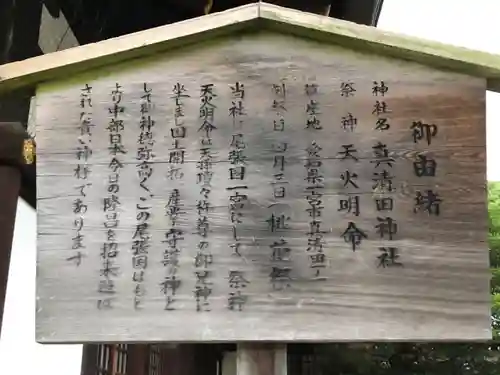 御由緒
神社名 真清田神社
祭神 天火明命
鎮座地 愛知県一宮市真清田一ノ
例祭日 四月三日 桃花祭
当社は尾張国一宮にして、祭神
天火明命は天孫瓊々杵尊の御兄神に
坐しまし国土開拓、産業守護の神と
して御神徳弥高く、この尾張国はもと
より中部日本今日の隆昌を招来遊ば
された貴い神様であります